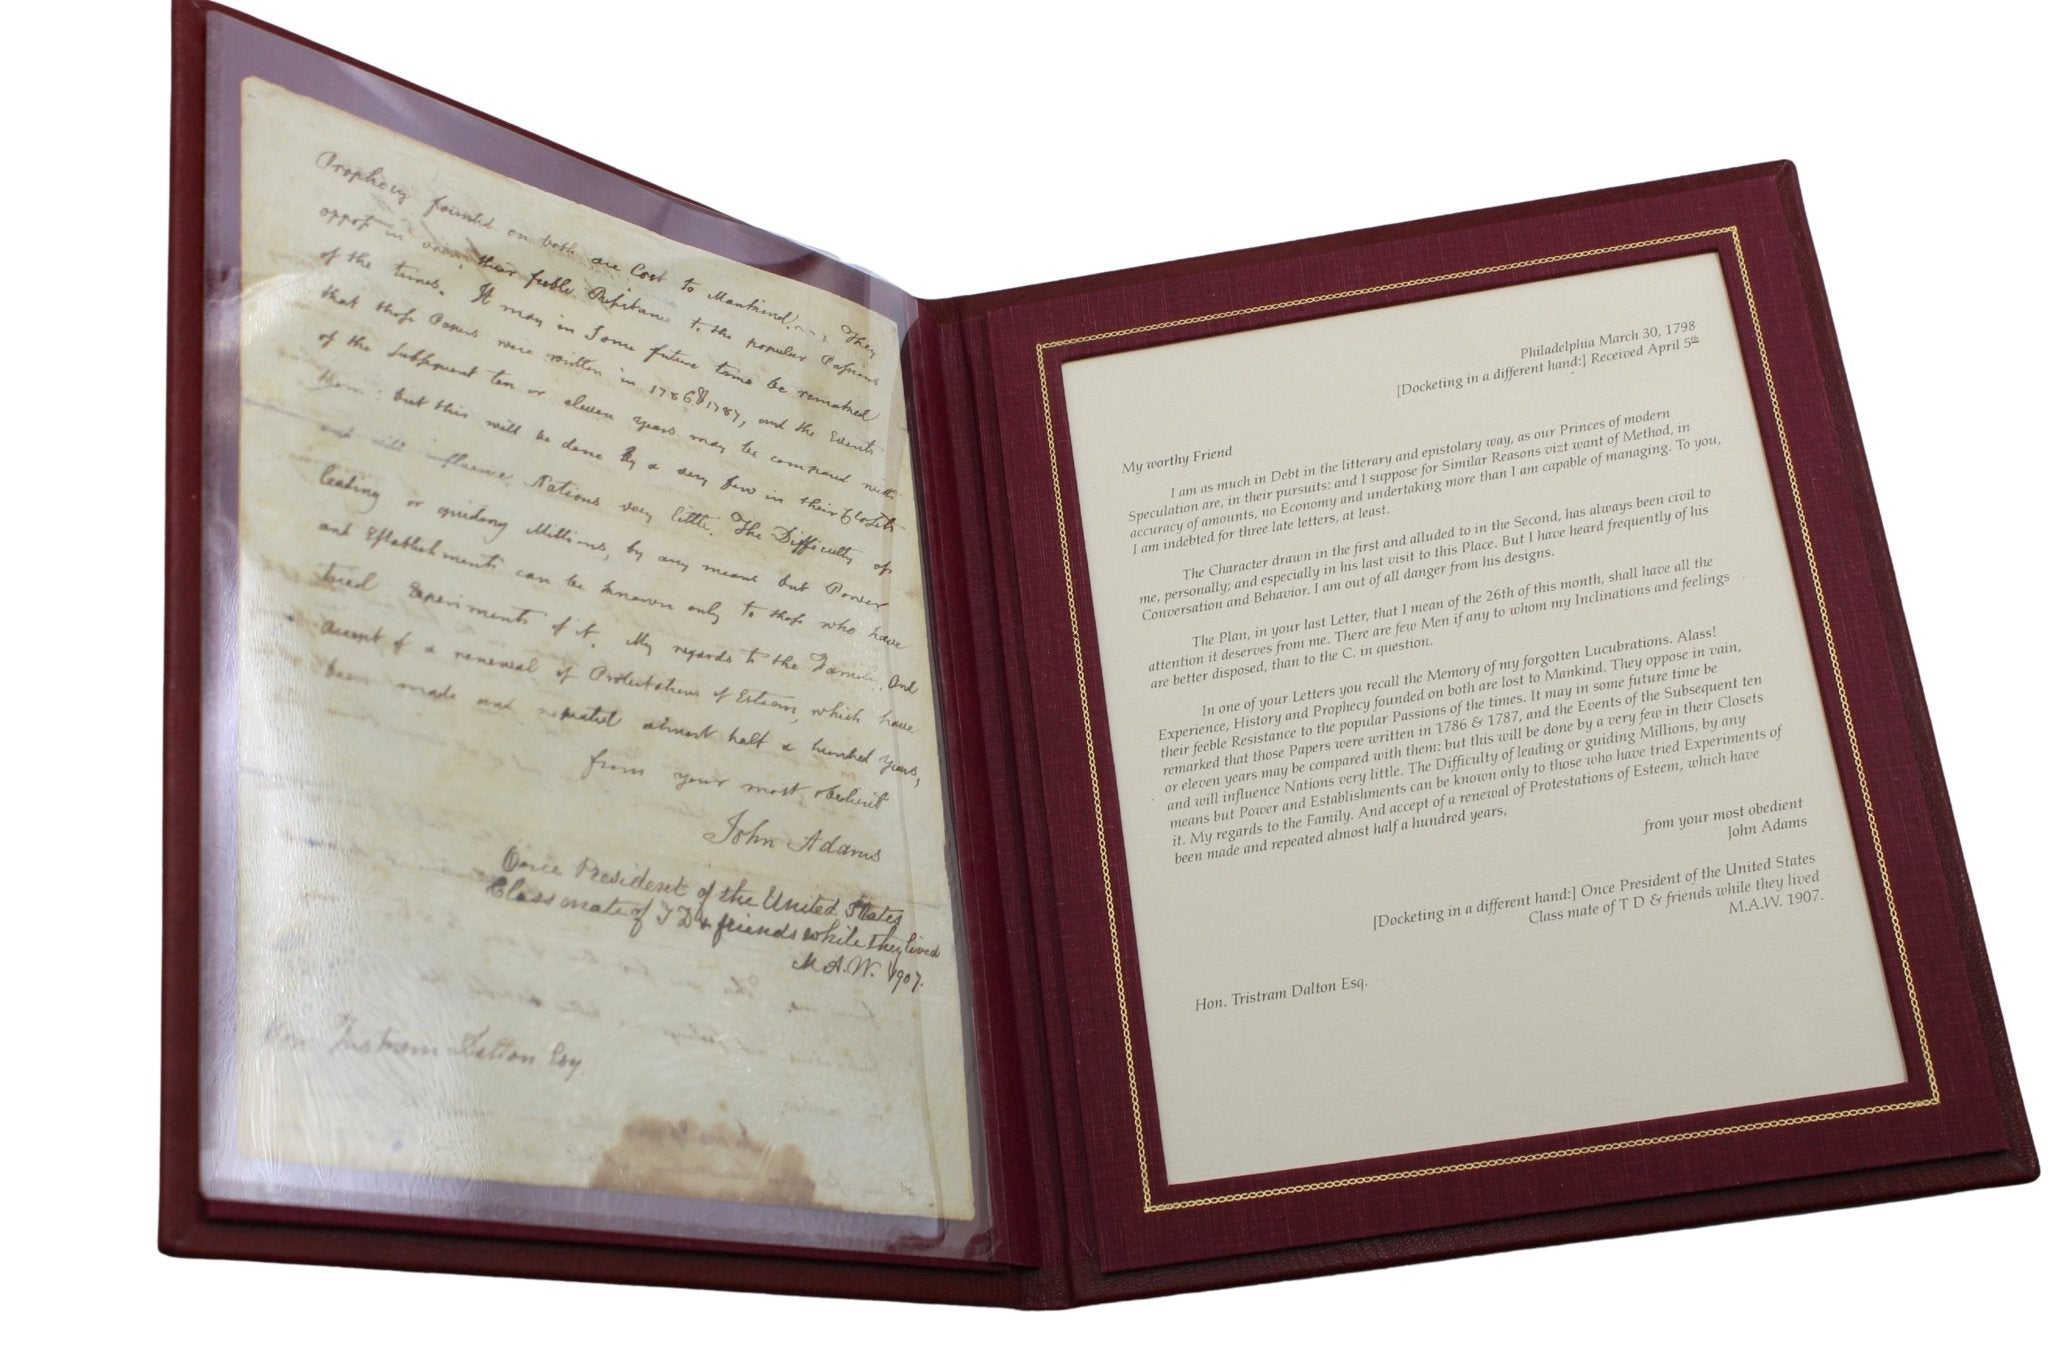 Prophecy founded on both are Lost to Mankind. They
oppose in vain, their feeble Resistance to the popular Passions
of the times. It may in some future time be remarked
that those Papers were written in 1786 & 1787, and the Events
of the Subsequent ten or eleven years may be compared with
them: but this will be done by a very few in their Closets
and will influence Nations very little. The Difficulty of
leading or guiding Millions, by any means but Power
and Establishments can be known only to those who have
tried Experiments of it. My regards to the Family. And
accept of a renewal of Protestations of Esteem, which have
been made and repeated almost half a hundred years,
from your most obedient
John Adams
Once President of the United States
Class mate of T D & friends while they lived
M.A.W. 1907.
Hon. Tristram Dalton Esq.
Philadelphia March 30, 1798
[Docketing in a different hand:] Received April 5th
My worthy Friend
I am as much in Debt in the litterary and epistolary way, as our Princes of modern
Speculation are, in their pursuits: and I suppose for Similar Reasons vizt want of Method, in
accuracy of amounts, no Economy and undertaking more than I am capable of managing. To you,
I am indebted for three late letters, at least.
The Character drawn in the first and alluded to in the Second, has always been civil to
me, personally; and especially in his last visit to this Place. But I have heard frequently of his
Conversation and Behavior. I am out of all danger from his designs.
The Plan, in your last Letter, that I mean of the 26th of this month, shall have all the
attention it deserves from me. There are few Men if any to whom my Inclinations and feelings
are better disposed, than to the C. in question.
In one of your Letters you recall the Memory of my forgotten Lucubrations. Alass!
Experience, History and Prophecy founded on both are lost to Mankind. They oppose in vain,
their feeble Resistance to the popular Passions of the times. It may in some future time be
remarked that those Papers were written in 1786 & 1787, and the Events of the Subsequent ten
or eleven years may be compared with them: but this will be done by a very few in their Closets
and will influence Nations very little. The Difficulty of leading or guiding Millions, by any
means but Power and Establishments can be known only to those who have tried Experiments of
it. My regards to the Family. And accept of a renewal of Protestations of Esteem, which have
been made and repeated almost half a hundred years,
from your most obedient
John Adams
[Docketing in a different hand:] Once President of the United States
Class mate of T D & friends while they lived
M.A.W. 1907.
Hon. Tristram Dalton Esq.